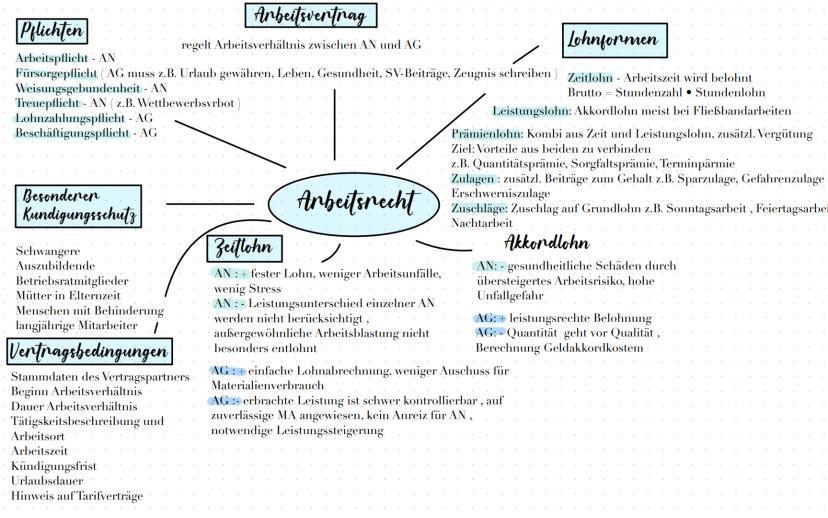 Arbeitsvertrag
regelt Arbeitsverhältnis zwischen AN und AG
Pflichten
Arbeitspflicht - AN
Fürsorgepflicht ( AG muss z.B. Urlaub gewähren, Leben, Gesundheit, SV-Beiträge, Zeugnis schreiben )
Weisungsgebundenheit - AN
Treuepflicht - AN ( z.B. Wettbewerbsvrbot )
Lohnzahlungspflicht - AG
Beschäftigungspflicht - AG
Lohnformen
Zeitlohn - Arbeitszeit wird belohnt
Brutto = Stundenzahl • Stundenlohn
Leistungslohn: Akkordlohn meist bei Fließbandarbeiten
Prämienlohn: Kombi aus Zeit und Leistungslohn, zusätzl. Vergütung
Ziel: Vorteile aus beiden zu verbinden
z.B. Quantitätsprämie, Sorgfaltsprämie, Terminpärmie
Zulagen : zusätzl. Beiträge zum Gehalt z.B. Sparzulage, Gefahrenzulage
Erschwerniszulage
Zuschläge: Zuschlag auf Grundlohn z.B. Sonntagsarbeit , Feiertagsarbei
Nachtarbeit
Arbeitsrecht
Besonderer
Kündigungsschutz
Schwangere
Auszubildende
Betriebsratmitglieder
Mütter in Elternzeit
Menschen mit Behinderung
langjährige Mitarbeiter
Zeitlohn
AN : + fester Lohn, weniger Arbeitsunfälle,
wenig Stress
AN : - Leistungsunterschied einzelner AN
werden nicht berücksichtigt ,
außergewöhnliche Arbeitsblastung nicht
besonders entlohnt
AG : + einfache Lohnabrechnung, weniger Auschuss für
Materialienverbrauch
AG :- erbrachte Leistung ist schwer kontrollierbar , auf
zuverlässige MA angewiesen, kein Anreiz für AN ,
notwendige Leistungssteigerung
Akkordlohn
AN: - gesundheitliche Schäden durch
übersteigertes Arbeitsrisiko, hohe
Unfallgefahr
AG: + leistungsrechte Belohnung
AG: - Quantität geht vor Qualität ,
Berechnung Geldakkordkostem
Vertragsbedingungen
Stammdaten des Vertragspartners
Beginn Arbeitsverhältnis
Dauer Arbeitsverhältnis
Tätigskeitsbeschreibung und
Arbeitsort
Arbeitszeit
Kündigungsfrist
Urlaubsdauer
Hinweis auf Tarifverträge